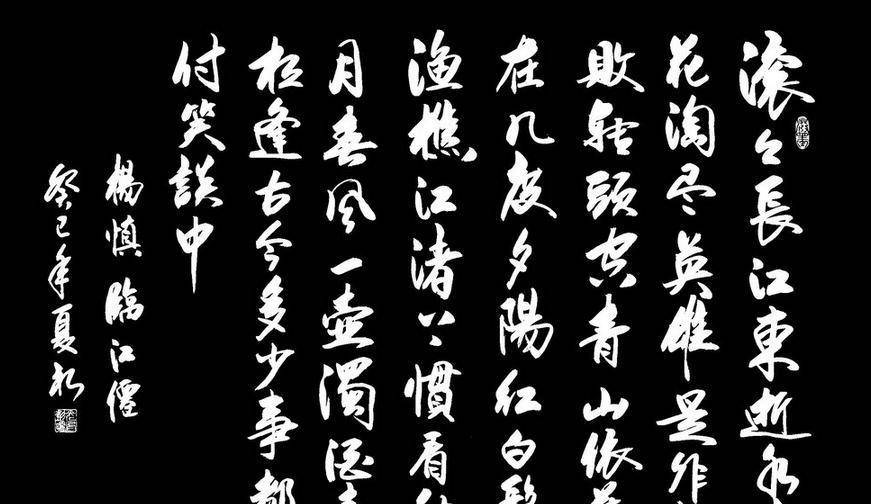 滚々長江東逝水
花淘尽英雄是非
敗转頭空青山依
在几度夕陽红白髮
渔樵江渚上慣看秋
月春風一壶濁酒
相逢古今多少事都
付笑談中
楊慎臨江僊
癸巳年夏於